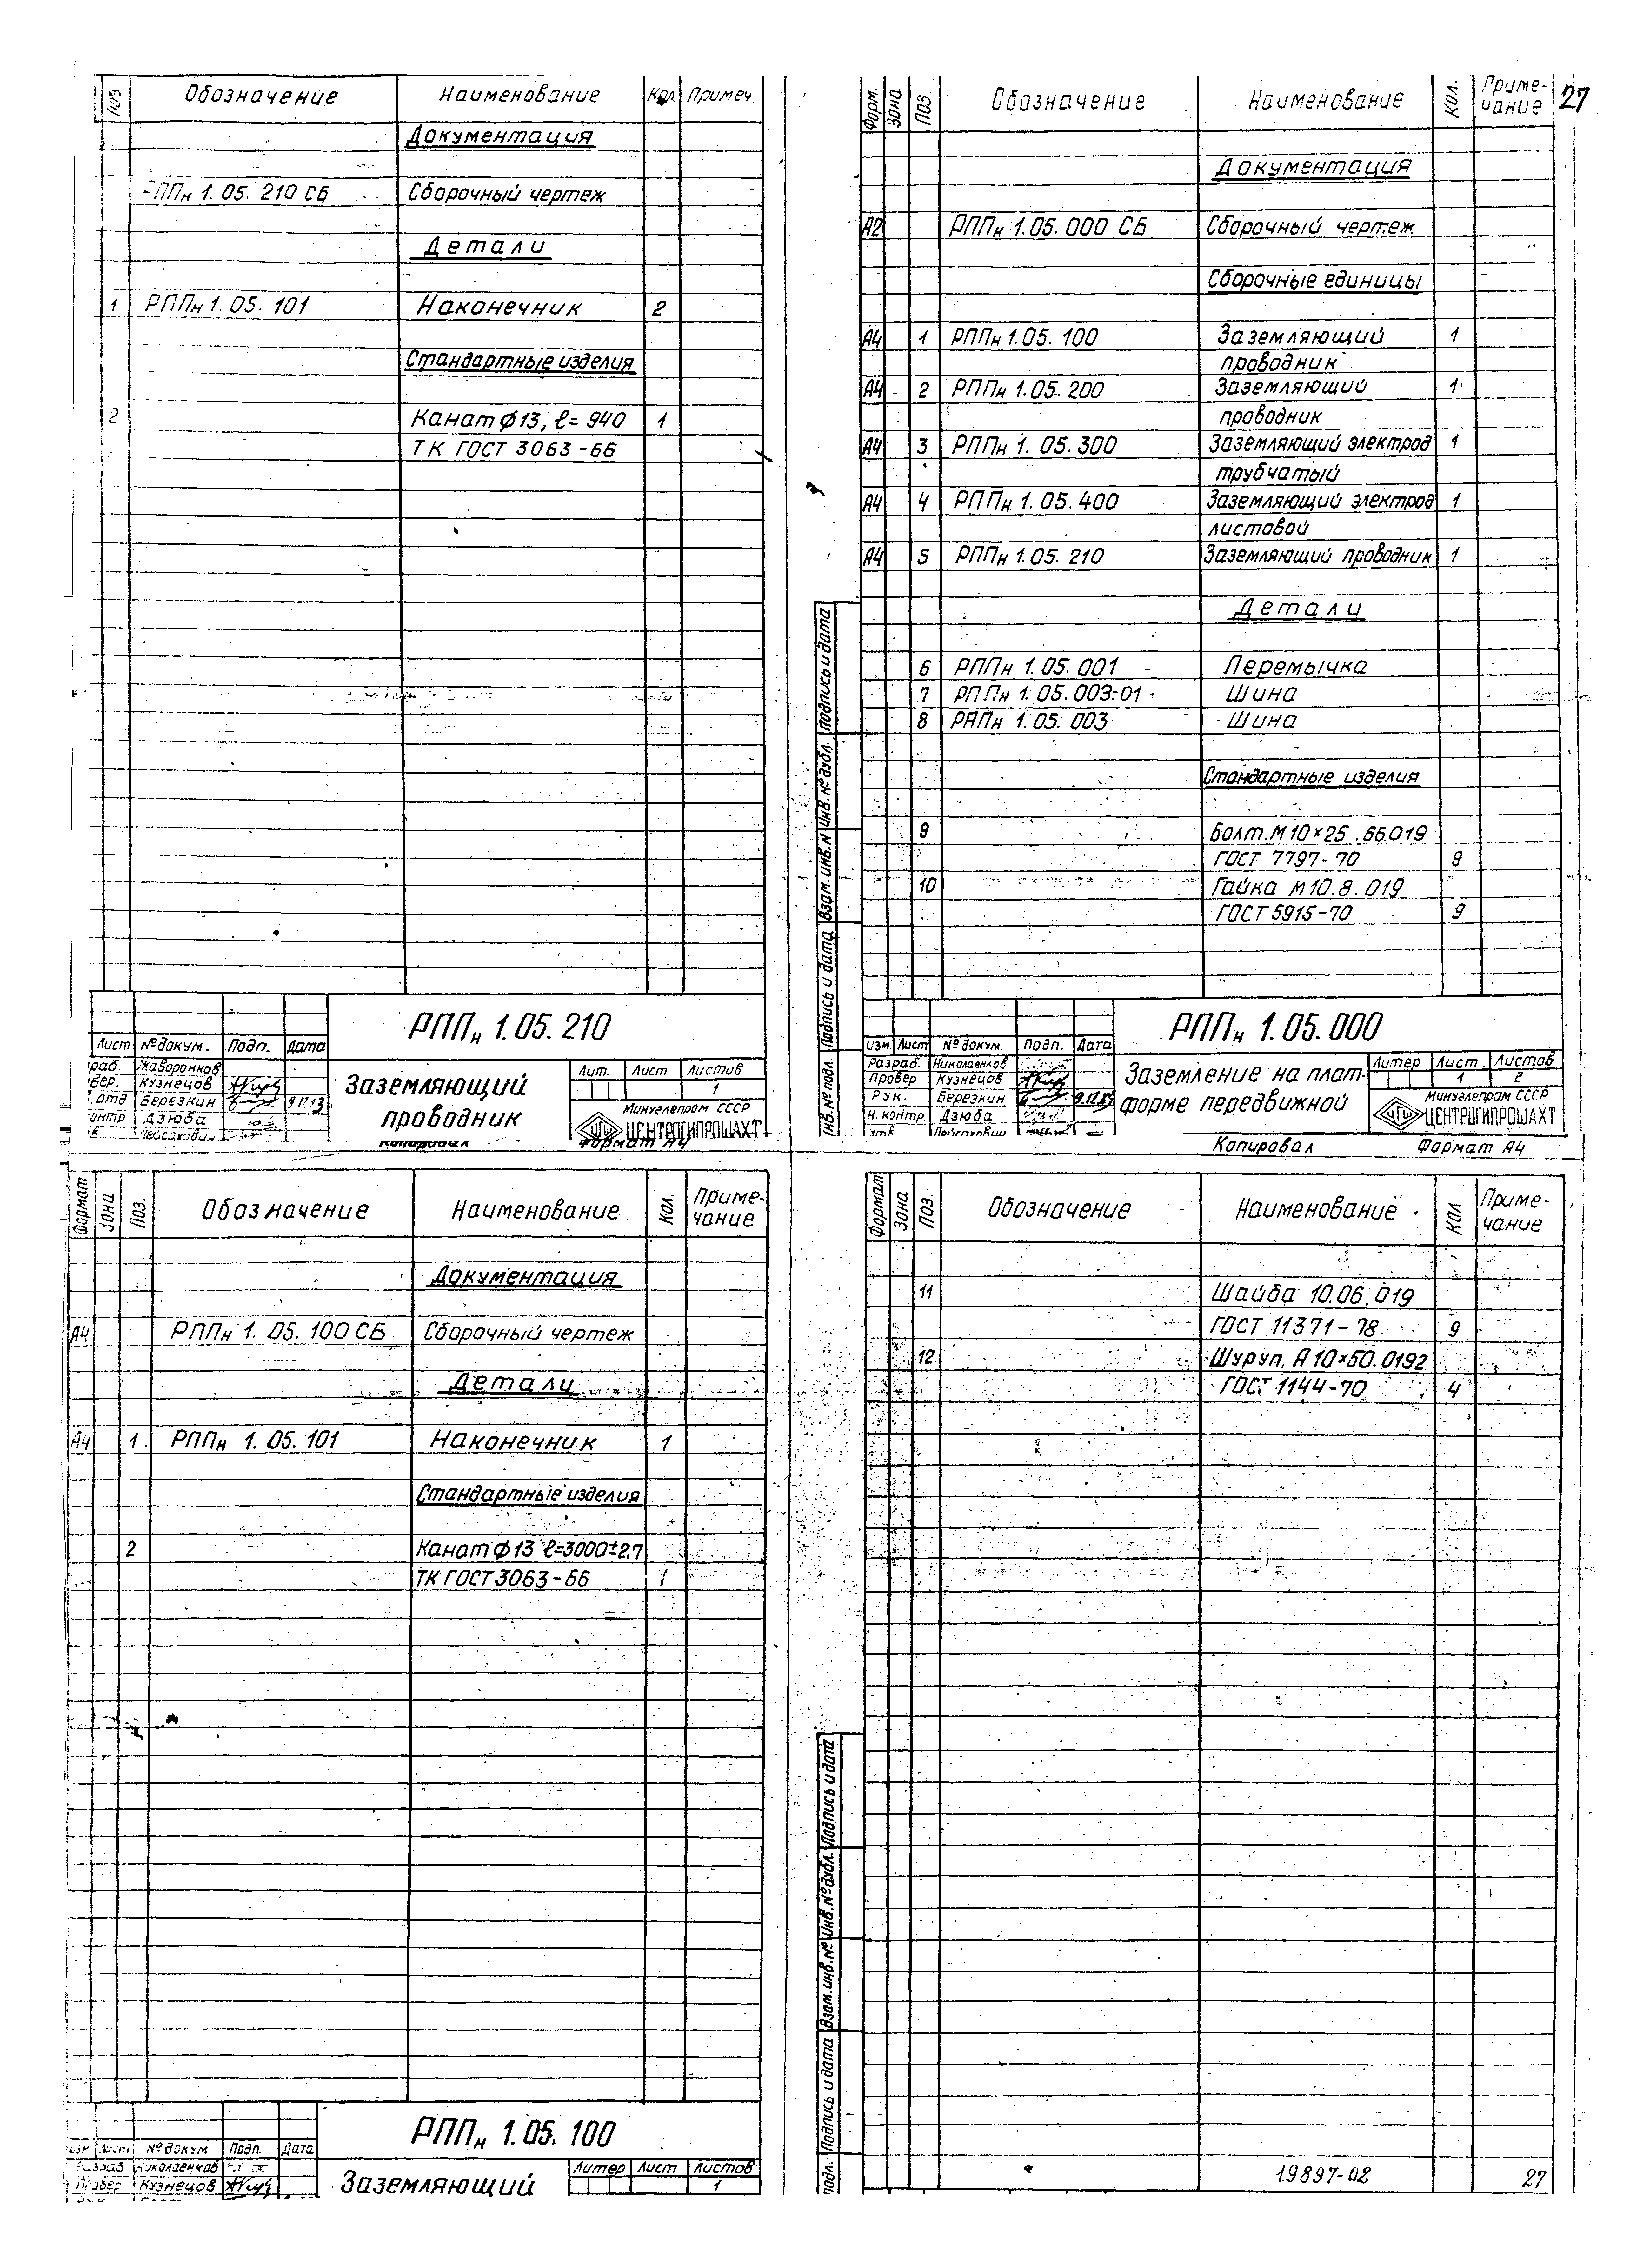 Поз Обозначение Наименование Кол Примеч.
Документация
РППн 1.05.210 СБ Сборочный чертеж
Детали
1 РППн 1.05.101 Наконечник 2
Стандартные изделия
2 Канат ϕ13, ℓ=940 1
ТК ГОСТ 3063-66
РППн 1.05.210
Лист № докум. Подп. Дата
Жаворонков
Кузнецов
Березкин
Дзюба
Заземляющий
проводник
Лит. Лист Листов
1
Минуглепром СССР
ЦЕНТРОГИПРОШАХТ
Копировал Формат А4
27
Форм. Зона Поз. Обозначение Наименование Кол. Приме-
чание
Документация
А2 РППн 1.05.000 СБ Сборочный чертеж
Сборочные единицы
А4 1 РППн 1.05.100 Заземляющий 1
проводник
А4 2 РППн 1.05.200 Заземляющий 1
проводник
А4 3 РППн 1.05.300 Заземляющий электрод 1
трубчатый
А4 4 РППн 1.05.400 Заземляющий электрод 1
листовой
А4 5 РППн 1.05.210 Заземляющий проводник 1
Детали
6 РППн 1.05.001 Перемычка
7 РППн 1.05.003-01 Шина
8 РЯПн 1.05.003 Шина
Стандартные изделия
9 Болт.М10×25.66.019
ГОСТ 7797-70 9
10 Гайка М10.8.019
ГОСТ 5915-70 9
Подпись и дата
Инв. № дубл.
Взам. инв. №
Подпись и дата
Инв. № подл.
РППн 1.05.000
Изм. Лист № докум. Подп. Дата
Разраб. Николаенков
Провер Кузнецов
Рук. Березкин
Н. контр. Дзюба
Утв. Пейсахович
Заземление на плат-
форме передвижной
Литер Лист Листов
1 2
Минуглепром СССР
ЦЕНТРОГИПРОШАХТ
Копировал Формат А4
Формат Зона Поз. Обозначение Наименование Кол. Приме-
чание
Документация
А4 РППн 1.05.100 СБ Сборочный чертеж
Детали
А4 1 РППн 1.05.101 Наконечник 1
Стандартные изделия
2 Канат ϕ13 ℓ=3000±2,7
ТК ГОСТ 3063-66 1
РППн 1.05.100
Лист № докум. Подп. Дата
Николаенков
Провер. Кузнецов
Заземляющий
Литер Лист Листов
1
Формат Зона Поз. Обозначение Наименование Кол Приме-
чание
11 Шайба 10.06.019
ГОСТ 11371-78 9
12 Шуруп А10×50.0192
ГОСТ 1144-70 4
Подпись и дата
Инв. № дубл.
Взам. инв. №
Подпись и дата
подл.
19897-02 27